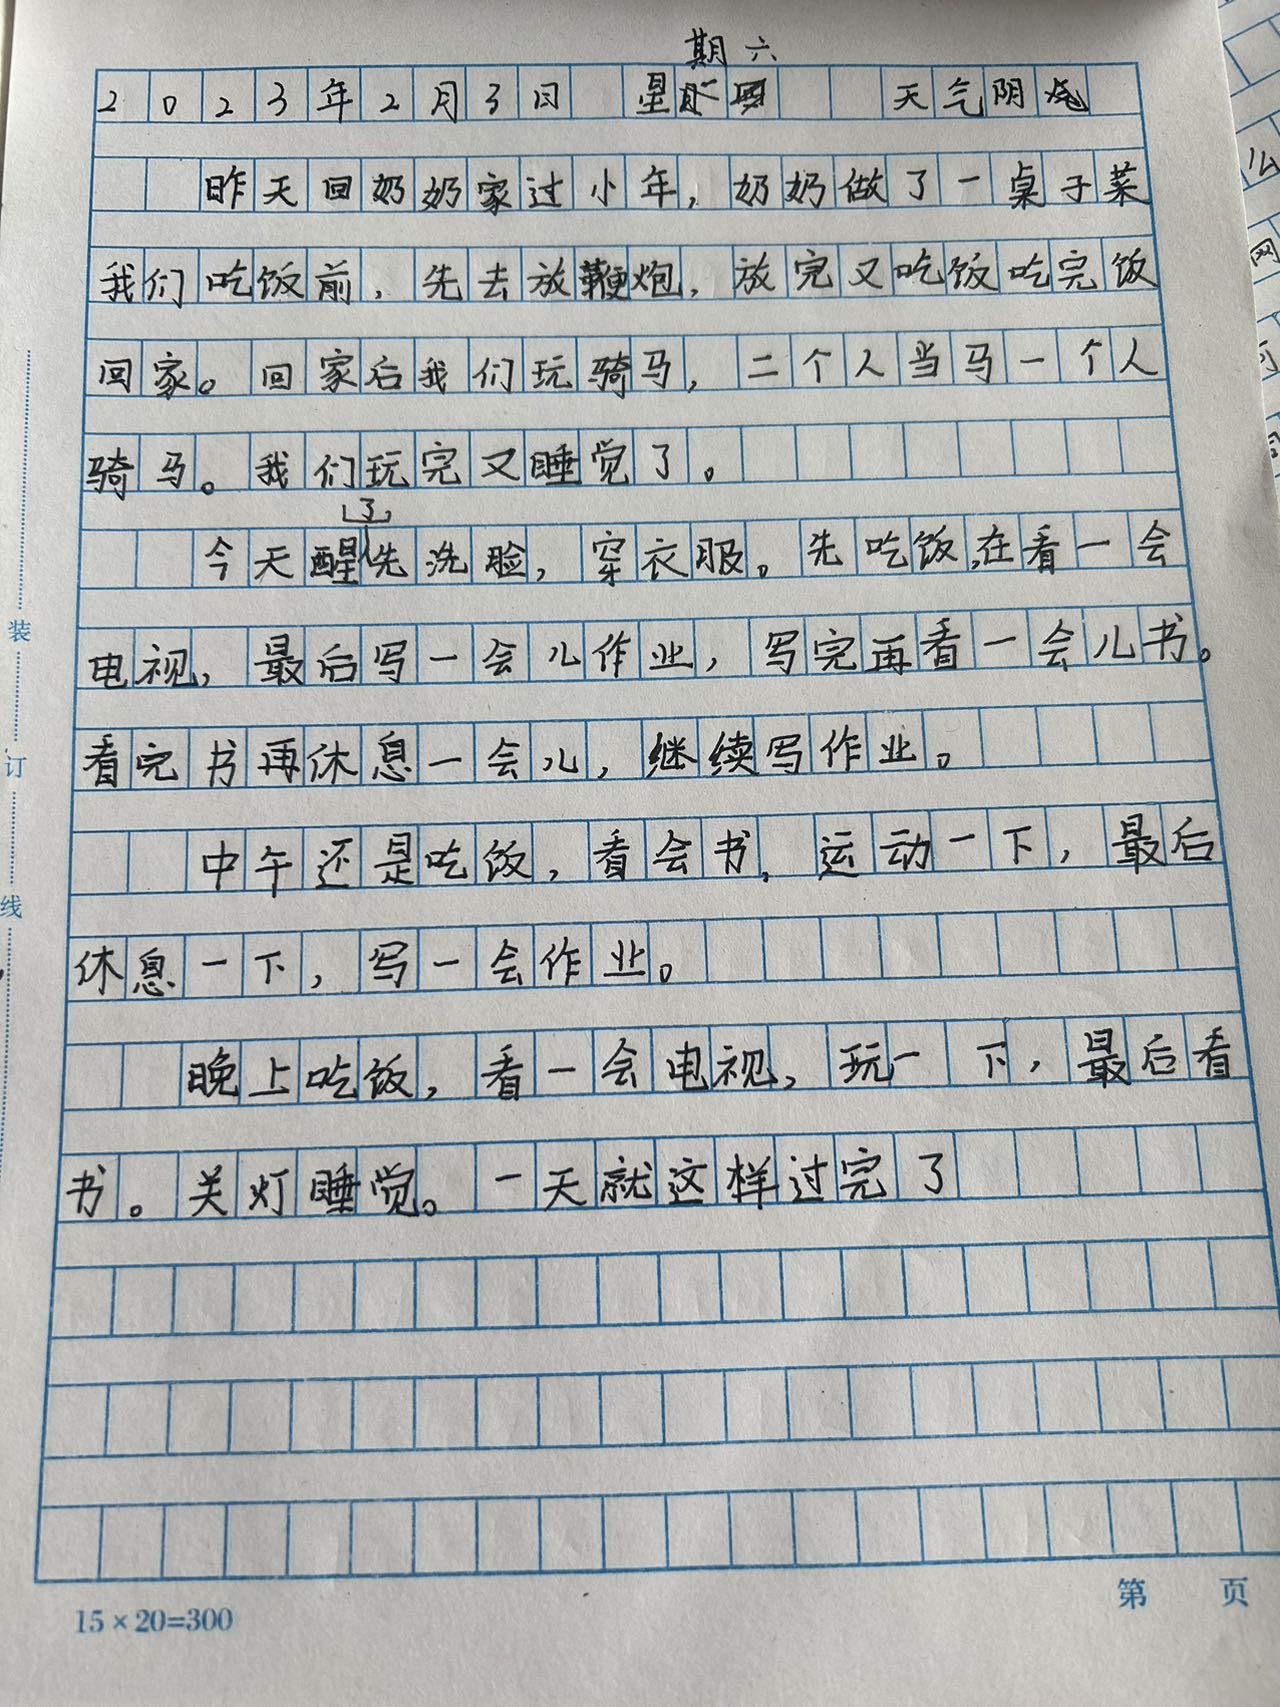 期六
2023年2月3日 星 天气阴
昨天回奶奶家过小年,奶奶做了一桌子菜
我们吃饭前,先去放鞭炮,放完又吃饭吃完饭
回家。回家后我们玩骑马,二个人当马一个人
骑马。我们玩完又睡觉了。
了
今天醒先洗脸,穿衣服。先吃饭,在看一会
电视,最后写一会儿作业,写完再看一会儿书。
看完书再休息一会儿,继续写作业。
中午还是吃饭,看会书,运动一下,最后
休息一下,写一会作业。
晚上吃饭,看一会电视,玩一下,最后看
书。关灯睡觉。一天就这样过完了
装
订
线
15×20=300
第 页
么
网